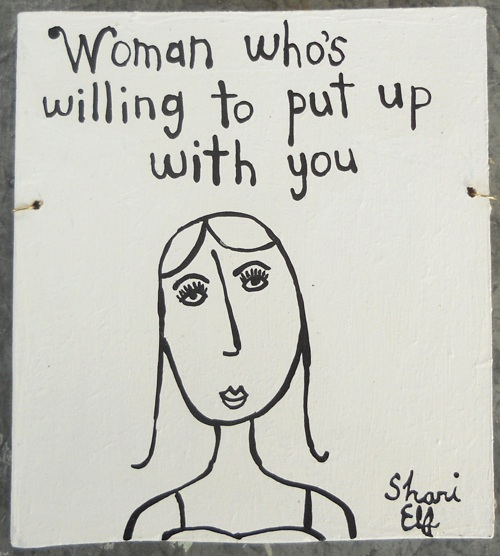 Woman who's
willing to put up
with you
Shari
Elf